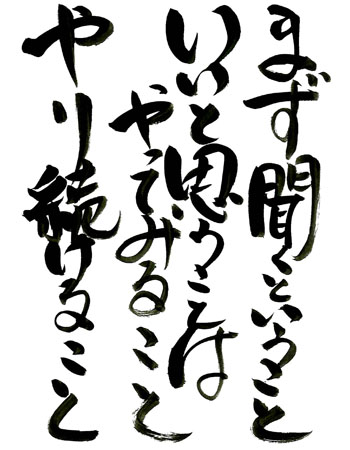 まず聞くということ
いいと思うことは
やってみること
やり続けること